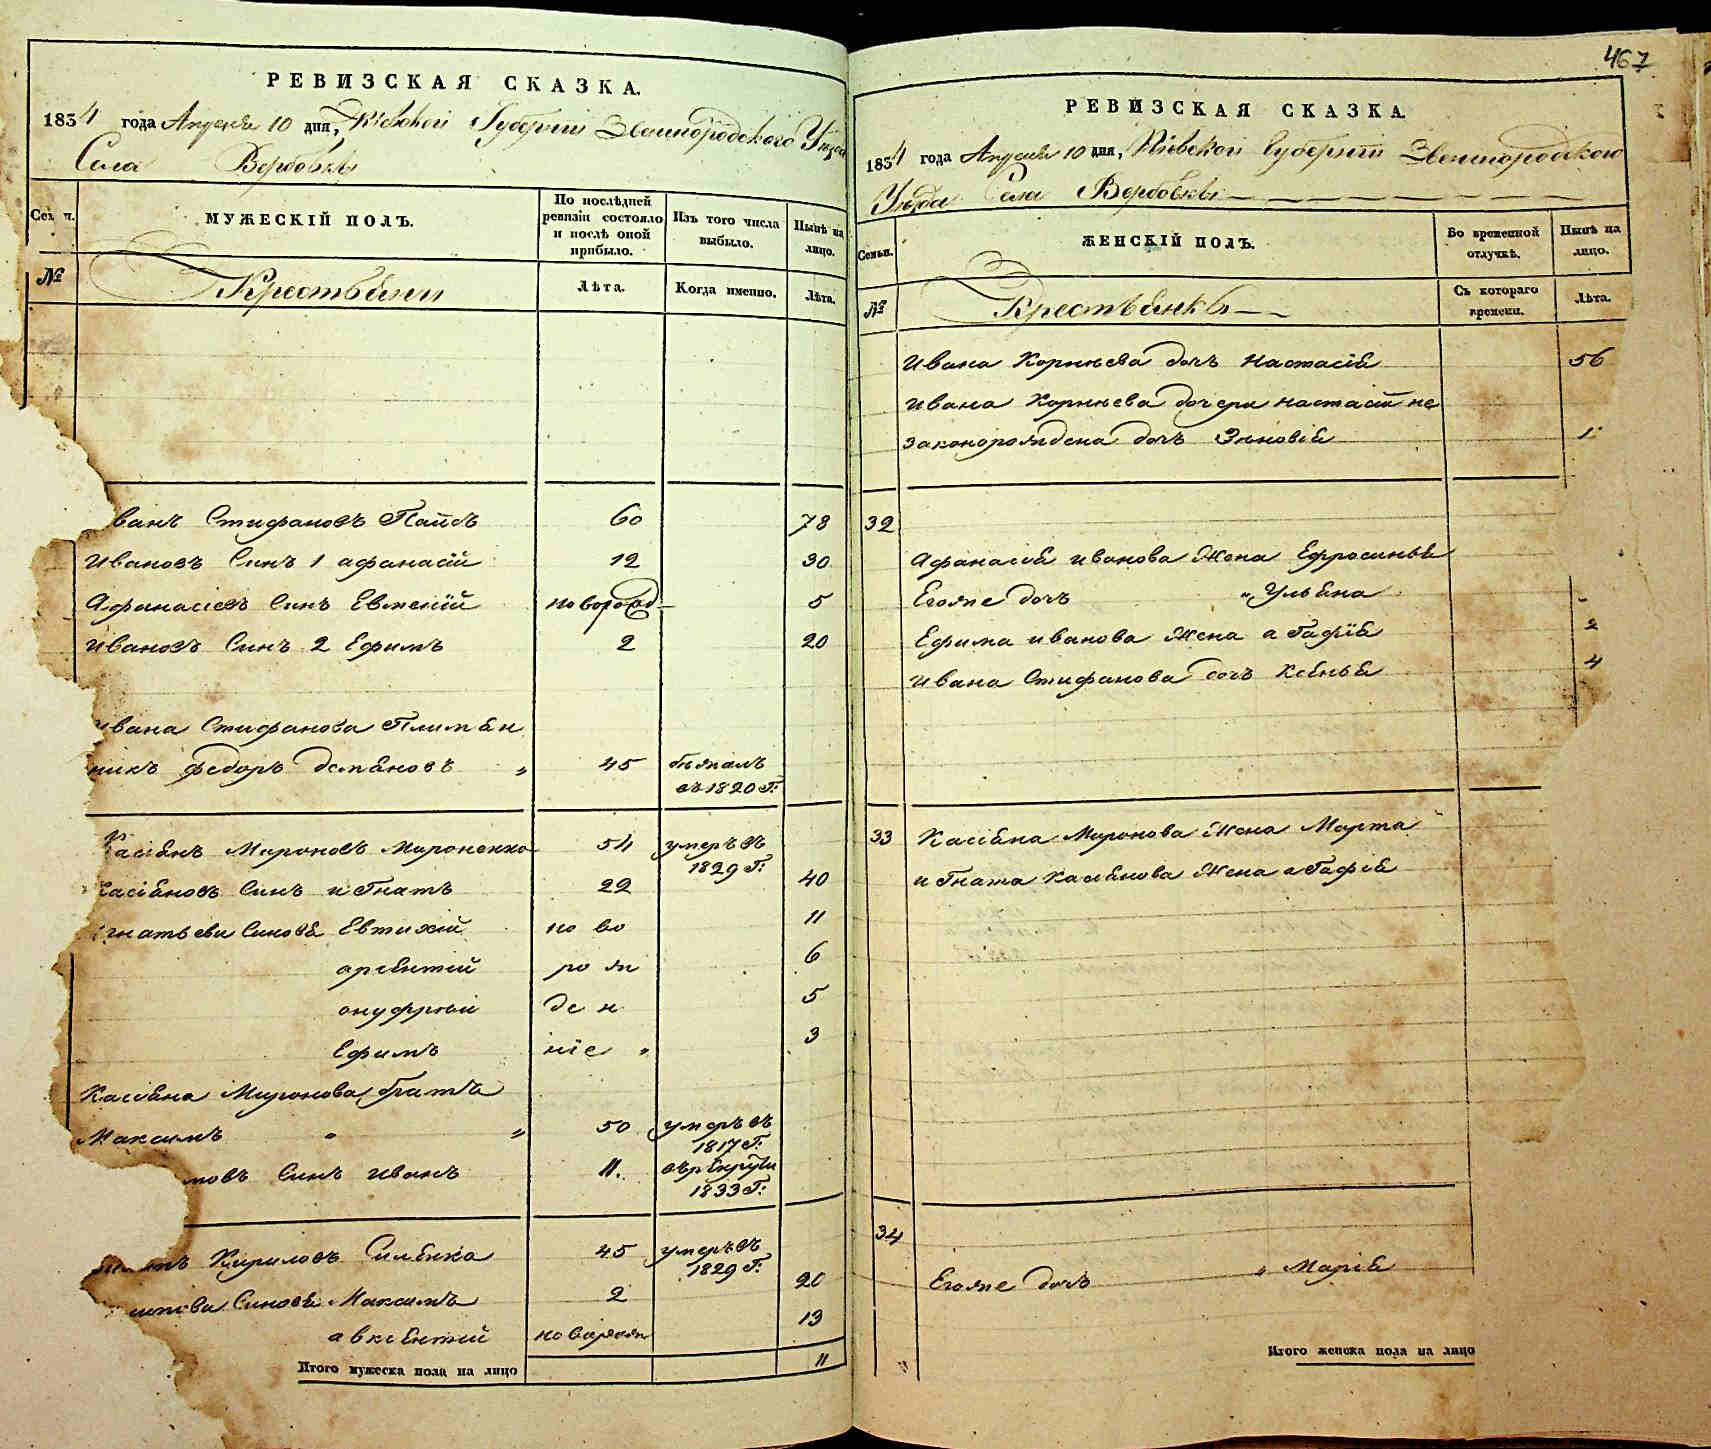 РЕВИЗСКАЯ СКАЗКА.
1834 года Апреля 10 дня, Кіевской Губерніи Звенигородского Уезда
Села Вербовки
Сем. ч.
МУЖЕСКІЙ ПОЛЪ.
По послѣдней ревизіи состояло и послѣ оной прибыло.
Изъ того числа выбыло.
Нынѣ на лицо.
№
Крестьяни
Лѣта.
Когда именно.
Лѣта.
ванъ Стифановъ 60 78
Ивановъ Синъ 1 афанасій 12 30
Афанасіевъ Синъ Евгеній новорожд 5
Ивановъ Синъ 2 Ефимъ 2 20
ивана Стифанова Племян
никъ федоръ демяновъ „ 45 бежалъ
въ 1820 Г:
Касіянъ Мироновъ Мироненко 54 умеръ въ
1829 Г:
Касіяновъ Синъ игнатъ 22 40
гнатьеви Синовя Евтихій но во 11
арсентій ро ж 6
онуфрій де н 5
Ефимъ ніе „ 3
Касіяна Миронова братъ
Максимъ „ „ 50 умеръ въ
1817 Г:
мовъ Синъ иванъ 11. въ рекруты
1833 Г:
Кириловъ 45 умеръ въ
1829 Г:
Синовя Максимъ 2 20
авксентій новорож 13
Итого мужеска пола на лицо 11
467
РЕВИЗСКАЯ СКАЗКА.
1834 года Апреля 10 дня, Кіевской Губерніи Звенигородского
Уезда Села Вербовки
Семьи.
ЖЕНСКІЙ ПОЛЪ.
Во временной отлучкѣ.
Нынѣ на лицо.
№
Крестьянки
Съ котораго времени.
Лѣта.
Ивана Корнѣева дочъ Настасія 56
Ивана Корнѣева дочери настасіи не
законорождена дочъ Зѣновія 1
32
Афанасія иванова Жена Ефросинья
Егожъ дочъ „ Ульяна
Ефима иванова Жена агафія 2
Ивана Стифанова дочъ Ксенья 4
33 Касіяна Миронова Жена Марта
игната Касіянова Жена агафія
34
Егоже дочъ „ Марія
Итого женска пола на лицо